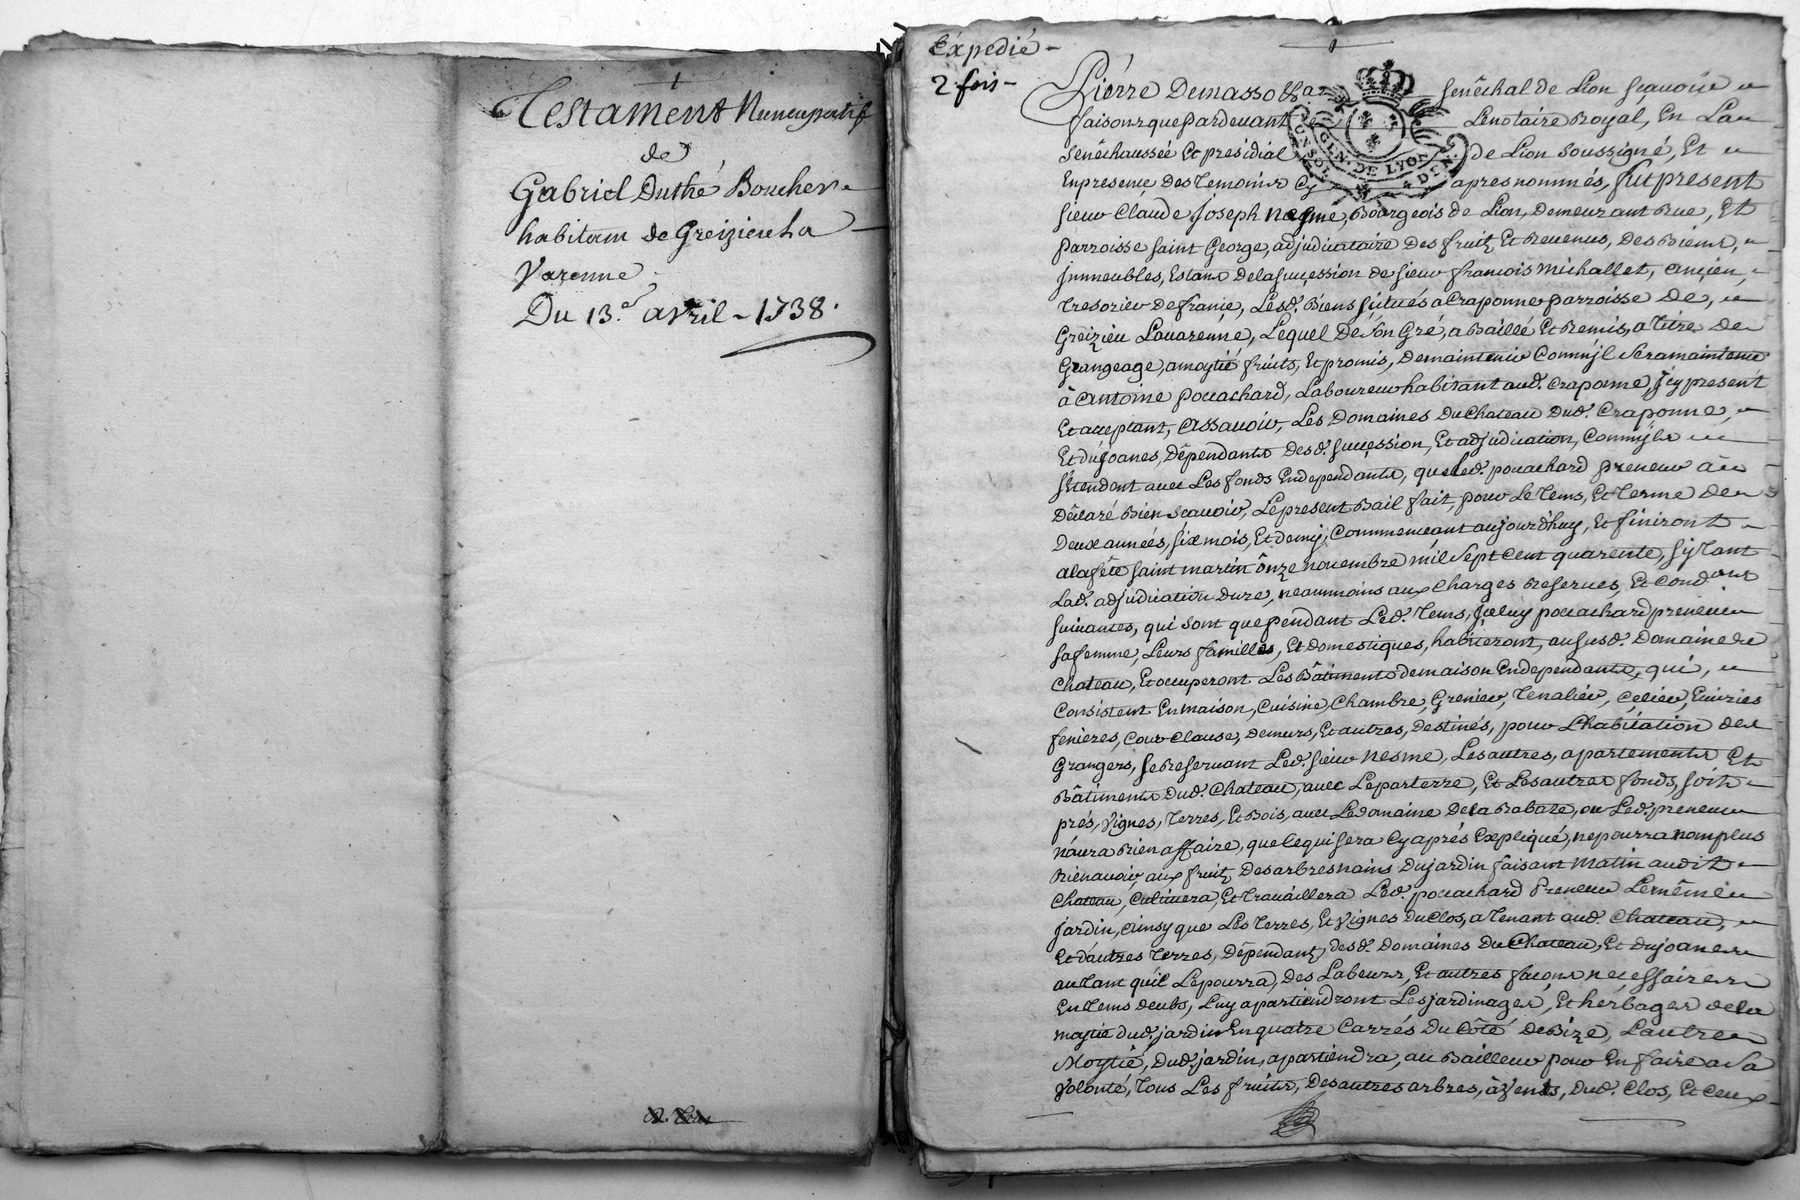 Testament Nuncupatif
de
Gabriel Duthé Boucher
habitant de Greizieu La
Varenne
Du 13.e avril - 1738.
Expedié -
2 fois -
Pierre Demasso senéchal de Lion sçavoir
faisons que pardevant Le notaire Royal, En La
senéchaussée Et presidial de Lion soussigné, Et
GEN. DE LYON
En presence des Temoins Cy apres nommés, fut present
sieur Claude Joseph Nesme, Bourgeois de Lion, demeurant Rue, Et
parroisse saint George, adjudicataire des fruitz Et Revenus, des Biens,
jmmeubles, Estans dela succession de sieur francois michallet, ancien,
Tresorier de france, Lesd. Biens situés a Craponne parroisse de,
Greizieu Lavarenne, Lequel de son Gré, a Baillé Et Remis, a titre de
Grangeage, a moytié fruits, Et promis, de maintenir Comm'jl sera maintenu
à Antoine pouachard, Laboureur habitant aud. Craponne, jcy present
Et acceptant, assavoir, Les domaines du Chateau dud. Craponne,
Et dujoanes, dépendants desd. succession, Et adjudication, Comm'jls
s'etendent avec Les fonds En dependants, que led. pouachard preneur à
déclaré Bien sçavoir, Le present Bail fait, pour Le Tems, Et Terme de
deux années, six mois, Et demy, Commenceant aujourd'huy, Et finiront
a la féte saint martin ónze novembre mil sept cent quarente, sy tant
Lad. adjudication dure, neammoins aux Charges reserves, Et Condons
suivantes, qui sont que pendant Led. Tems, jceluy pouachard preneur
sa femme, Leurs familles, Et domestiques, habiteront, au susd. domaine de
Chateau, Et occuperont Les Bâtiments de maison En dependants, qui,
Consistent En maison, Cuisine, Chambre, Grenier, Tenalier, Celier, Ecuries
fenieres, Cour Clause, demurs, Et autres, destinés, pour L'habitation des
Grangers, se Reservant Led. sieur nesme, Les autres, apartements Et
Bâtiments dud. Chateau, avec Le parterre, Et Les autres fonds, soit
prés, Vignes, Terres, Et Bois, avec Le domaine dela Rabate, ou Led. preneur
n'aura Rien affaire, que le qui sera Cy aprés Expliqué, ne pourra non plus
Rien avoir, aux fruitz des arbres nains du jardin faisant matin audit
Chateau, Cultivera, Et Travaillera Led. pouachard Preneur Le même
jardin, ainsy que Les Terres, Et Vignes du Clos, a Tenant aud. Chateau,
Et d'autres Terres, dépendantz desd. domaines du Chateau, Et dujoanes
autant qu'il Le pourra, des Labeurs, Et autres facons necessaires
En Tems deubs, Luy apartiendront Les jardinages, Et hérbages de la
moytié dud. jardin En quatre Carrés du Côté de Bize, L'autre
Moytié, dud. jardin, apartiendra, au Bailleur pour En faire a sa
Volonté, Tous Les fruits, des autres arbres, à vents, dud. Clos, Et Ceux